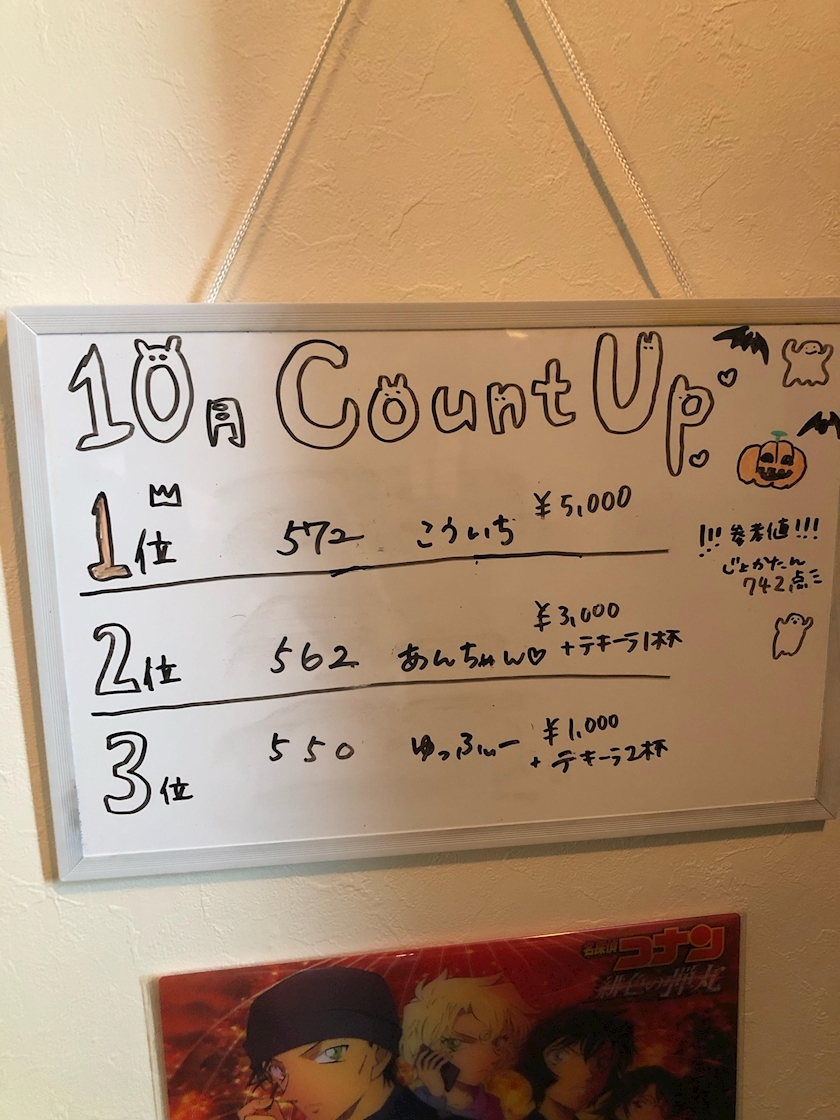 10月 Count Up
1位 572 こういち ¥5,000
2位 562 あんちゃん♡ ¥3,000
+テキーラ1杯
3位 550 ゆっふぃー ¥1,000
+テキーラ2杯
!!!参考値!!!
じょがたん
742点
名探偵
コナン
緋色の弾丸